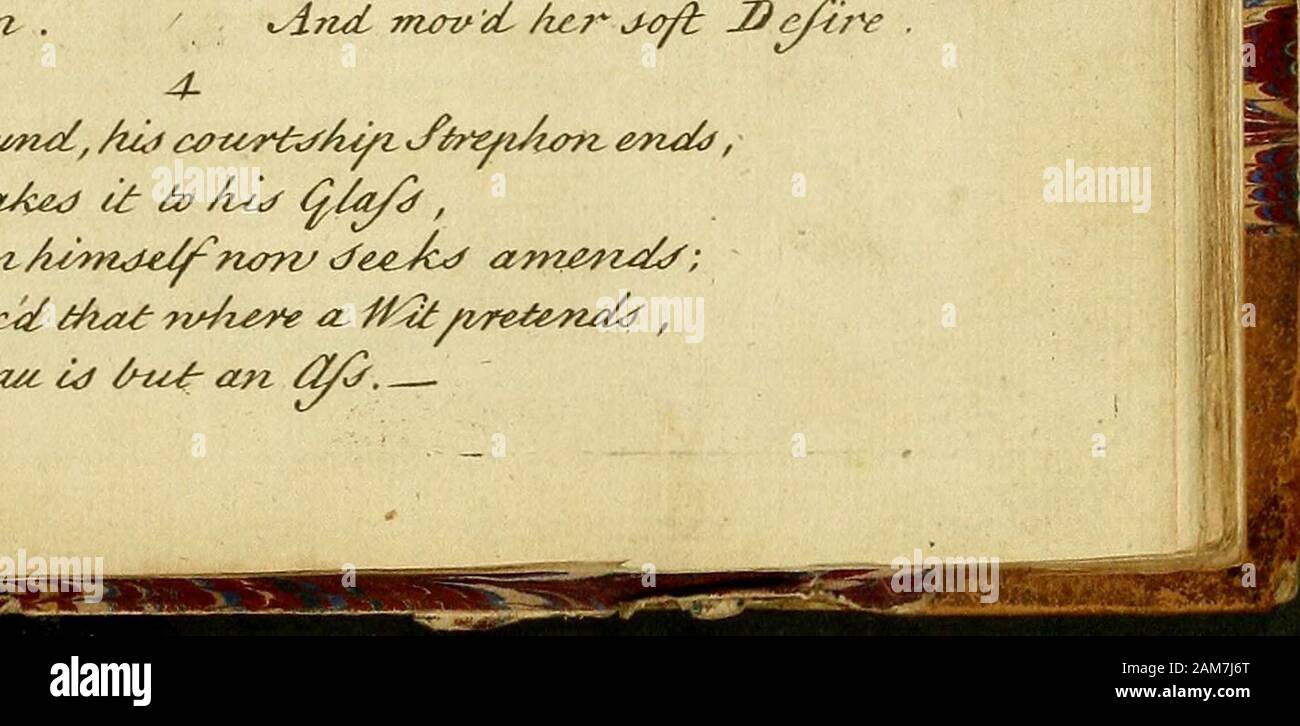 n. And mov'd her soft Desire.
4
und, his courtship Strephon ends,
akes it to his Glaſs,
n himself now seeks amends;
c'd that where a Wit pretends,
au is but an Aſs. —
alamy
alamy
alamy
alamy
a
a
a
a
a
a
a
a
a
a
a
a
a
alamy
Image ID: 2AM7J6T
www.alamy.com